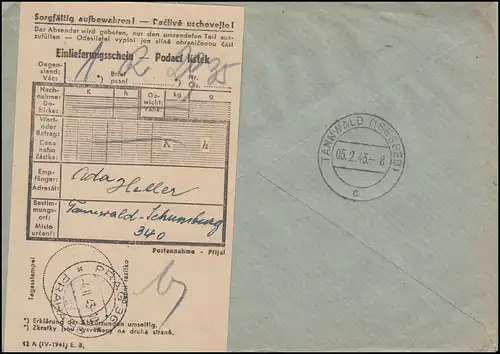 Sorgfältig aufbewahren! — Pečlivě uschovejte!
Der Absender wird gebeten, nur den umrandeten Teil aus-
zufüllen — Odesilatel vyplní jen silně ohraničenou část
Einlieferungsschein — Podací lístek
Gegen-
stand:
Věc:
1 R
Brief
psaní
Nr.
Čís.
2935
Nach-
nahme:
Do-
bírka:
K h
Ge-
wicht
Váha:
kg g
Wert-
oder
Betrag:
Cena
nebo
částka:
K h
Emp-
fänger:
Adresát:
Ada Heller
Bestim-
mungs-
ort:
Místo
určení:
Tannwald-Schumburg
340
Postannahme - Přijal
Tagesstempel
*) Erklärung der Abkürzungen umseitig.
*) Zkratky jsou vysvětleny na druhé straně.
42 A (IV-1941) E. 8.
TANNWALD (ISERGEB)
05.2.43.- 8
c